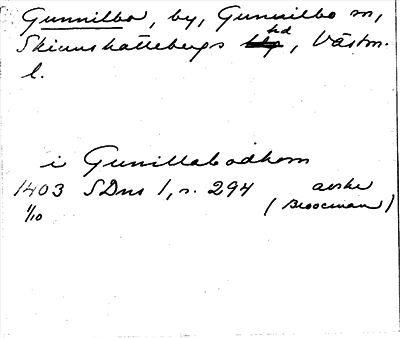 Gunnilbo, by, Gunnilbo sn,
Skinnskattebergs hd, Västm.
l.
i Gunillabodhom
1403 SDns 1, s. 294 avskr
1/10 (Broocman)